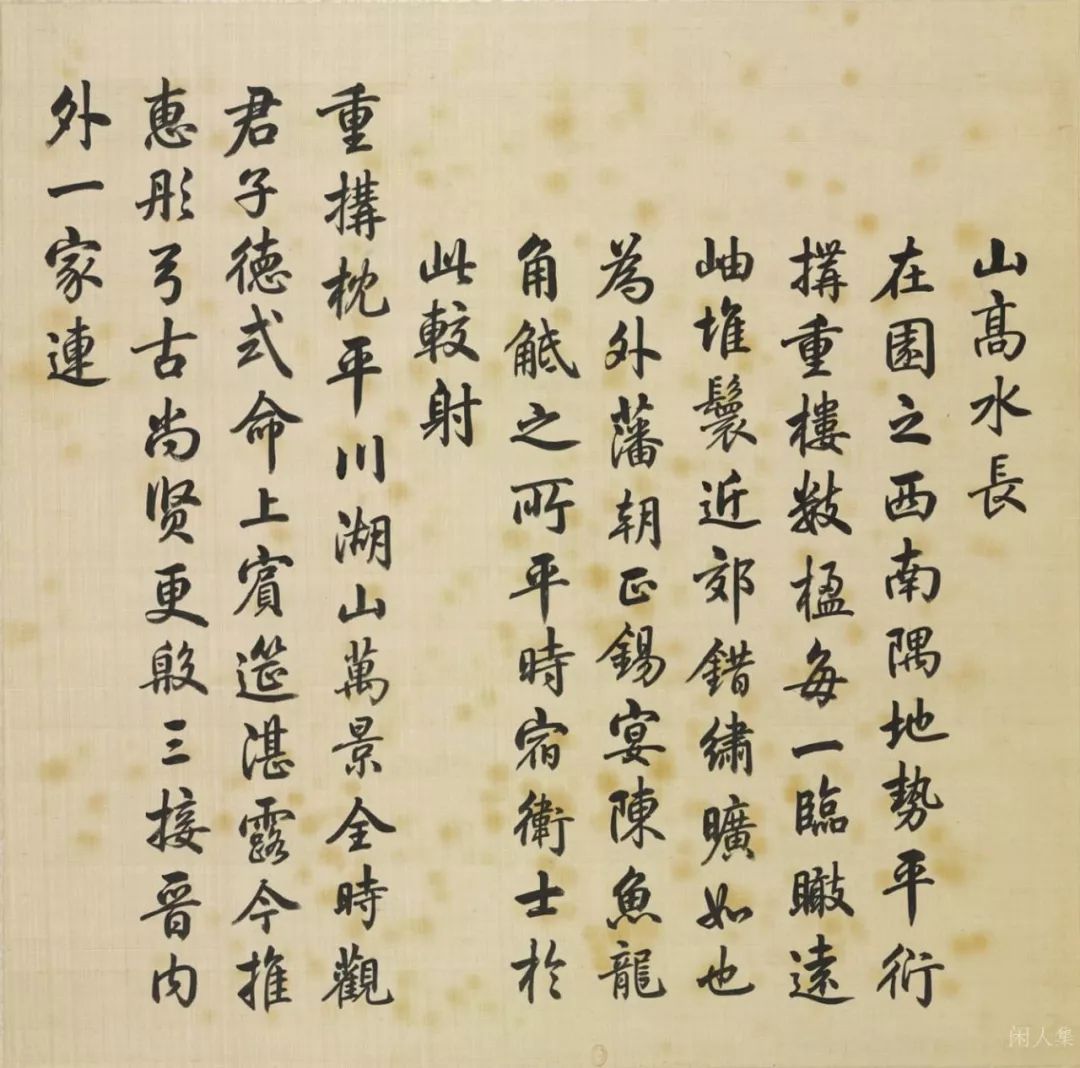 山高水長
在園之西南隅地勢平衍
搆重樓數楹每一臨瞰遠
岫堆鬟近郊錯繡曠如也
為外藩朝正錫宴陳魚龍
角觝之所平時宿衛士於
此較射
重搆枕平川湖山萬景全時觀
君子德式命上賓筵湛露今推
惠彤弓古尚賢更殷三接晉内
外一家連
闲人集